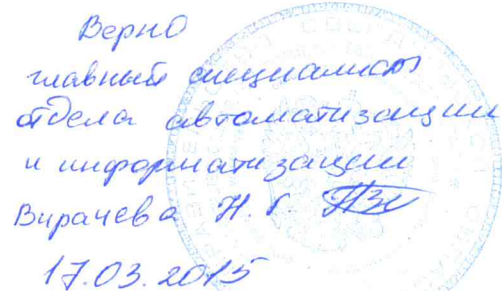 Верно
главный специалист
отдела автоматизации
и информатизации
Вирачева Н. Г.
17.03.2015